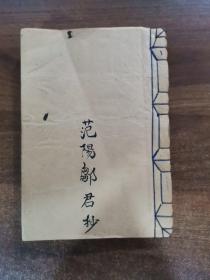 范陽鄒君抄